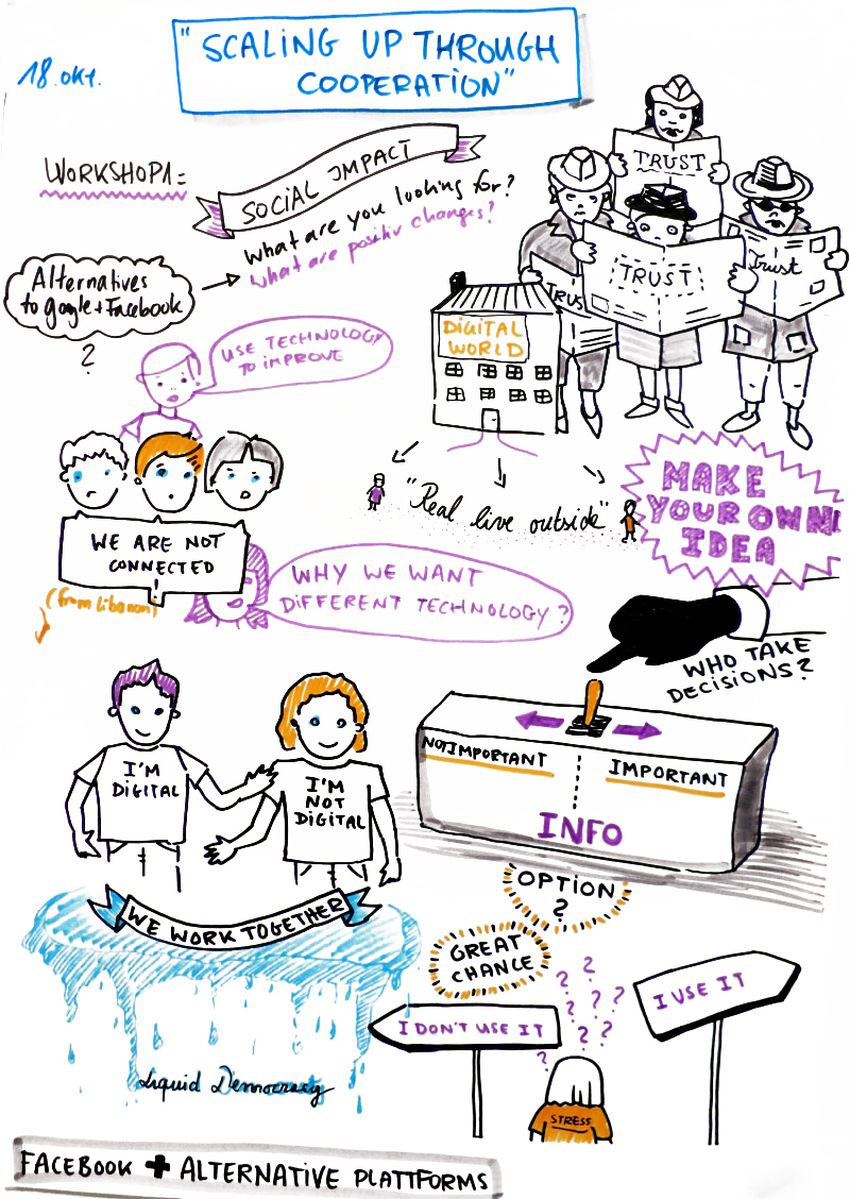 "SCALING UP THROUGH
COOPERATION"
18. OKT.
WORKSHOP1=
SOCIAL IMPACT
What are you looking for?
What are positiv changes?
Alternatives
to google + Facebook
?
USE TECHNOLOGY
TO IMPROVE
TRUST
TRUST
Trust
TRUS
DIGITAL
WORLD
"Real live outside"
MAKE
YOUR OWN
IDEA
WE ARE NOT
CONNECTED
!
(from Libanon)
WHY WE WANT
DIFFERENT TECHNOLOGY?
WHO TAKE
DECISIONS?
NOT IMPORTANT
IMPORTANT
INFO
I'M
DIGITAL
I'M
NOT
DIGITAL
WE WORK TOGETHER
OPTION
?
GREAT
CHANCE
? ? ? ? ? ? ?
I DON'T USE IT
I USE IT
STRESS
Liquid Democracy
FACEBOOK + ALTERNATIVE PLATTFORMS